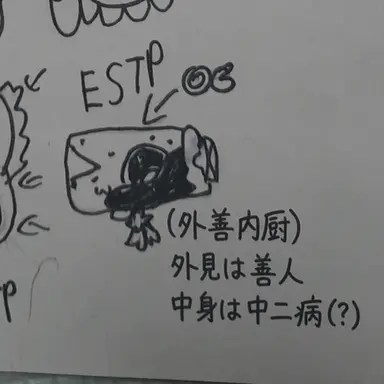 ESTP
(外善内厨)
外見は善人
中身は中二病(?)